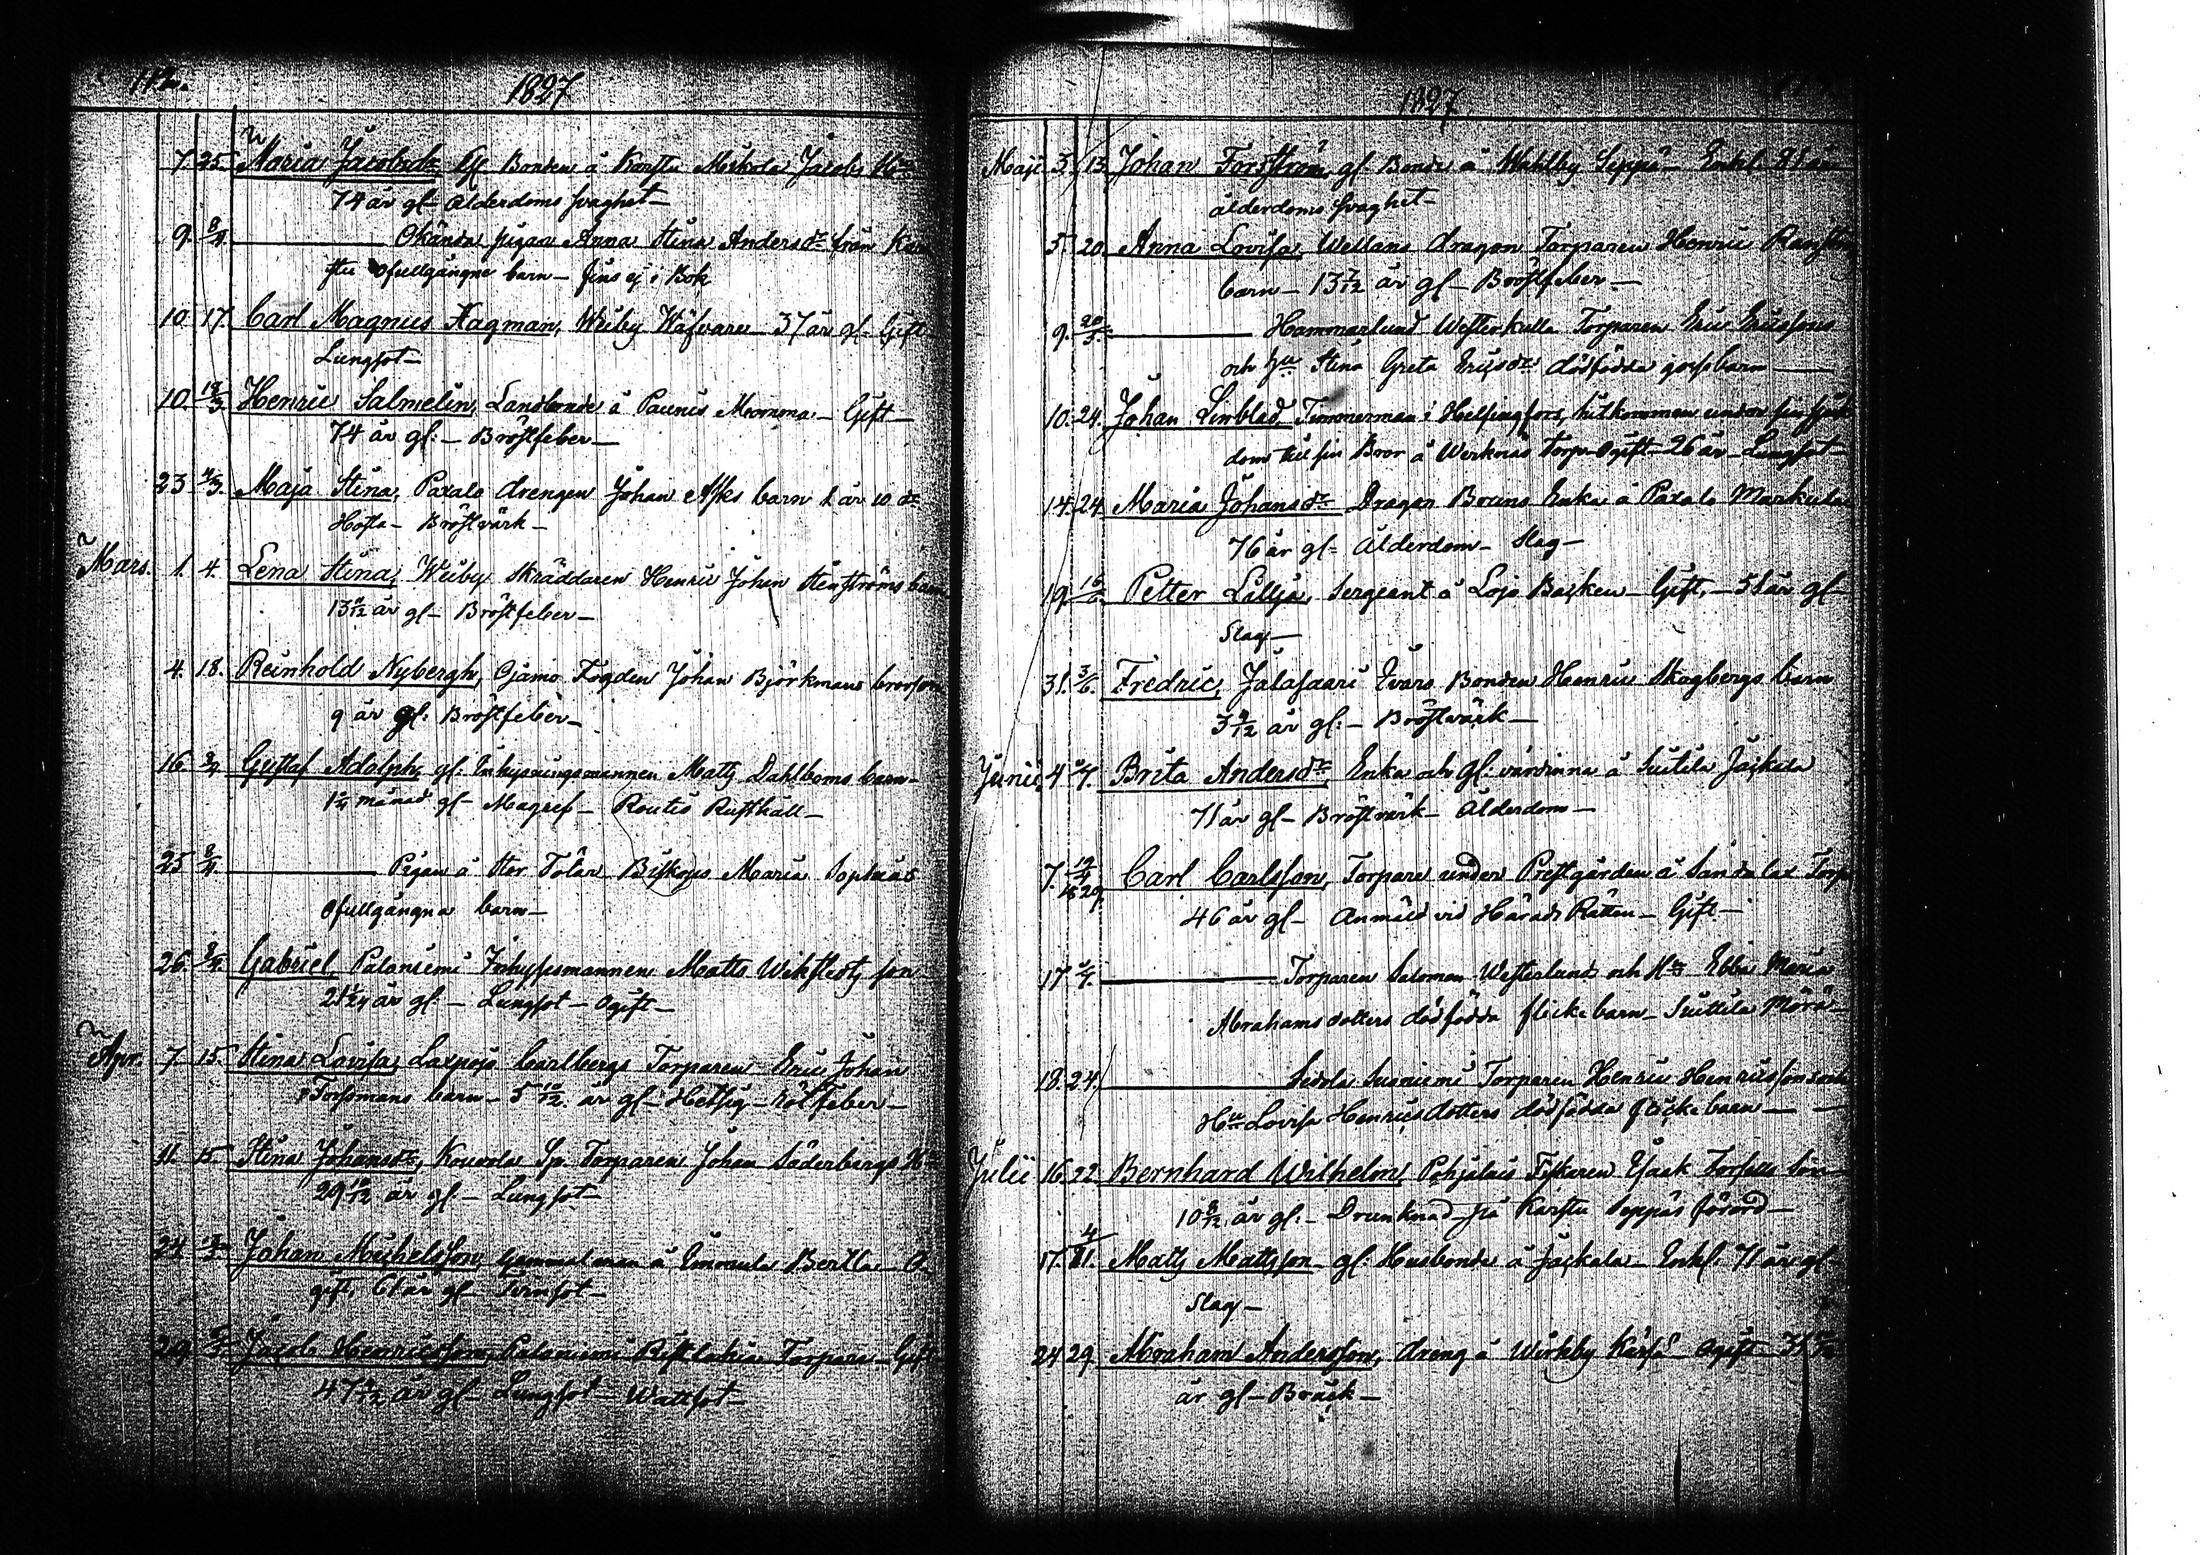 112.
1827
7. 25. Maria Jacobsdr, Gl. Bondens å Karstu Mickola Jacobs Hu
74 år gl. Ålderdoms svaghet
9. 8/4. Okända pigan Anna Stina Andersdr från Kar
stu ofullgångne barn - fins ej i Bok
10. 17. Carl Magnus Hagman, Wiby Wäfvare 37 år gl. Gift
Lungsot
10. 18/3. Henric Salmelin, Landbonde å Paunis Mommo - Gift
74 år gl. - Bröstfeber
23 4/3. Maja Stina, Paxalo drengen Johan Asks barn 1 år 10 dr
Hosta - Bröstvärk
Mars. 1. 4. Lena Stina, Weiby Skräddaren Henric Johan Stenströms barn
13 år gl - Bröstfeber
4. 18. Reinhold Nybergh, Ojamo Fogden Johan Björkmans brorson
9 år gl. Bröstfeber
16. Gustaf Adolph, gl. Inhysningsmannen Matts Dahlboms barn
månad gl - Magref - Routis Rusthåll
25 8/4. Pigan å Stor Tötar Biskops Maria Sophias
ofullgångna barn
26. Gabriel, Paloniemi Inhysesmannen Matts Wikstedts son
år gl. - Lungsot - Ogift
Apr. 7. 15. Stina Lovisa, Laxpojo Carlbergs Torparen Eric Johan
Forsmans barn - 5 år gl - Hetsig - Rötfeber
11. 15 Stina Johansdr, Kouvola Torparen Johan Söderbergs Hu
29 10/12 år gl - Lungsot
24 Johan Michelsson, Gammal man å Immola Bertla O
gift, 61 år gl - Tvinsot
29. Jacob Henricsson, Palaniemi Torpare - Gift
47 år gl - Lungsot - Wattsot
1827
Maji 5 13. Johan Forsström, gl. Bonde å Wahlby Seppä Enkl. 81 år
ålderdoms svaghet
5 20. Anna Lovisa, Wellans dragon Torparen Henric
barn - 13 7/12 år gl - Bröstfeber
9. 20/5. Hammarlund Westerkulla Torparen Eric Ericssons
och Hu Stina Greta Ericsdrs dödfödda gossbarn
10. 24. Johan Linblad, Timmerman i Helsingfors, hitkommen under sin sjuk
dom till sin Bror å Werknäs Torp - Ogift - 26 år - Lungsot
14. 24. Maria Johansdr Dragon Bruns Enka å Paxalo Markula
76 år gl - Ålderdom - Slag
19. Petter Lillja, Sergeant å Lojo Backen - Gift, - 51 år gl
Slag
31. 3/6. Fredric, Jalasaari Ivars Bonden Henric Skogbergs barn
3 år gl. - Bröstvärk
Junii 4 Brita Andersdr Enka och gl. värdinna å Suitila Jackala
71 år gl - Bröstvärk - Ålderdom
7. Carl Carlsson, Torpare under Prestgården å Sandalax Torp
46 år gl - Anmäld vid Härads Rätten - Gift
17 Torparen Salomon Westerlunds och Hu Ebba Maria
Abrahams dotters dödfödda flicke barn - Suittila Mörä
18. 24. Suoniemi Torparen Henric Henricssons och
Hu Lovisa Henrics dotters dödfödda flicke barn
Julii 16. 22. Bernhard Wilhelm, Pohjalais Fiskaren Isack Forsells Son
10 8/12 år gl. - Drunknad på Karstu Seppäs
17. Matts Mattsson gl. Husbonde å Jackala Enkl. 71 år gl
Slag
24 29. Abraham Andersson, dräng å Wirkby Ogift
år gl - Bråck